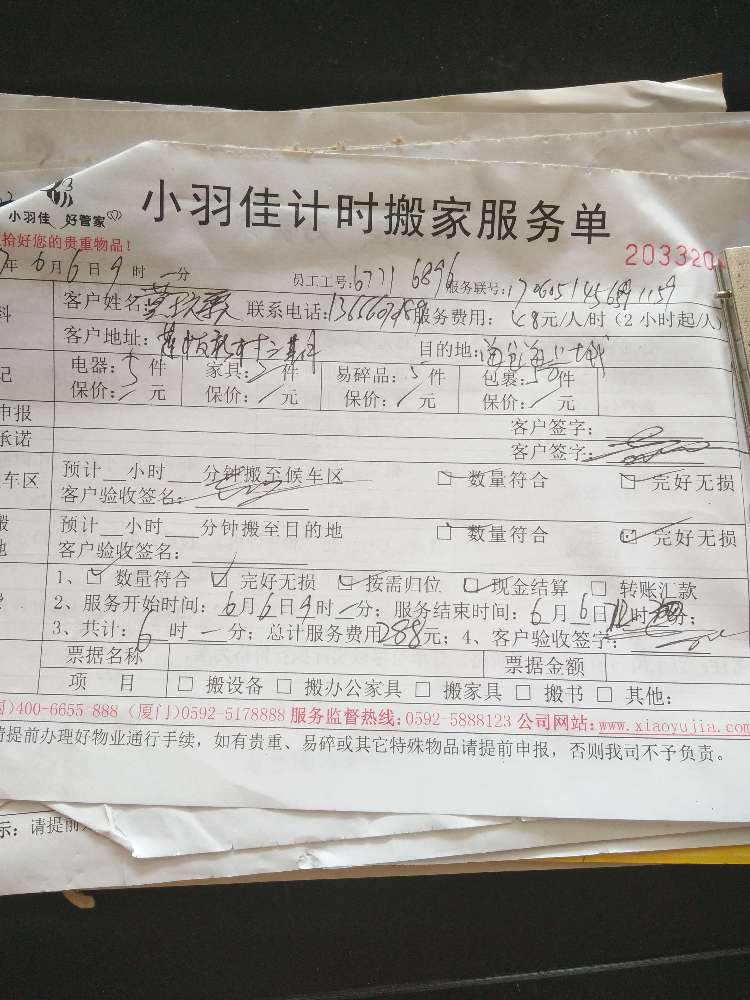 小羽佳 好管家
小羽佳计时搬家服务单
拾好您的贵重物品!
203320
年 6 月 6 日 9 时 一分
员工工号:6771 6896 服务联号:
客户姓名: 联系电话: 服务费用: 48元/人/时 (2 小时起/人)
客户地址: 目的地:
电器: 5 件 家具: 件 易碎品: 5 件 包裹: 50 件
保价: / 元 保价: / 元 保价: / 元 保价: / 元
申报
客户签字:
承诺
客户签字:
车区 预计 小时 分钟搬至候车区 ☑ 数量符合 ☑ 完好无损
客户验收签名:
预计 小时 分钟搬至目的地 ☑ 数量符合 ☑ 完好无损
客户验收签名:
1、☑ 数量符合 ☑ 完好无损 ☑ 按需归位 ☑ 现金结算 □ 转账汇款
2、服务开始时间: 6月6日9时一分; 服务结束时间: 6月6日12时 分;
3、共计: 6 时 一 分; 总计服务费用288元; 4、客户验收签字:
票据名称 票据金额
项 目 □ 搬设备 □ 搬办公家具 □ 搬家具 □ 搬书 □ 其他:
)400-6655 888 (厦门)0592-5178888 服务监督热线:0592-5888123 公司网站:www.xiaoyujia.com
请提前办理好物业通行手续, 如有贵重、易碎或其它特殊物品请提前申报, 否则我司不予负责。
示: 请提前